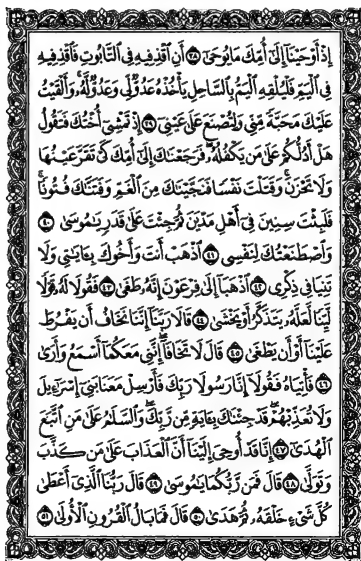 إِذْ أَوْحَيْنَآ إِلَىٰٓ أُمِّكَ مَا يُوحَىٰٓ ٣٨ أَنِ ٱقْذِفِيهِ فِى ٱلتَّابُوتِ فَٱقْذِفِيهِ
فِى ٱلْيَمِّ فَلْيُلْقِهِ ٱلْيَمُّ بِٱلسَّاحِلِ يَأْخُذْهُ عَدُوٌّ لِّى وَعَدُوٌّ لَّهُۥ وَأَلْقَيْتُ
عَلَيْكَ مَحَبَّةً مِّنِّى وَلِتُصْنَعَ عَلَىٰ عَيْنِىٓ ٣٩ إِذْ تَمْشِىٓ أُخْتُكَ فَتَقُولُ
هَلْ أَدُلُّكُمْ عَلَىٰ مَن يَكْفُلُهُۥ فَرَجَعْنَٰكَ إِلَىٰٓ أُمِّكَ كَىْ تَقَرَّ عَيْنُهَا
وَلَا تَحْزَنَ وَقَتَلْتَ نَفْسًا فَنَجَّيْنَٰكَ مِنَ ٱلْغَمِّ وَفَتَنَّٰكَ فُتُونًا
فَلَبِثْتَ سِنِينَ فِىٓ أَهْلِ مَدْيَنَ ثُمَّ جِئْتَ عَلَىٰ قَدَرٍ يَٰمُوسَىٰ ٤٠
وَٱصْطَنَعْتُكَ لِنَفْسِى ٤١ ٱذْهَبْ أَنتَ وَأَخُوكَ بِـَٔايَٰتِى وَلَا
تَنِيَا فِى ذِكْرِى ٤٢ ٱذْهَبَآ إِلَىٰ فِرْعَوْنَ إِنَّهُۥ طَغَىٰ ٤٣ فَقُولَا لَهُۥ قَوْلًا
لَّيِّنًا لَّعَلَّهُۥ يَتَذَكَّرُ أَوْ يَخْشَىٰ ٤٤ قَالَا رَبَّنَآ إِنَّنَا نَخَافُ أَن يَفْرُطَ
عَلَيْنَآ أَوْ أَن يَطْغَىٰ ٤٥ قَالَ لَا تَخَافَآ إِنَّنِى مَعَكُمَآ أَسْمَعُ وَأَرَىٰ
٤٦ فَأْتِيَاهُ فَقُولَآ إِنَّا رَسُولَا رَبِّكَ فَأَرْسِلْ مَعَنَا بَنِىٓ إِسْرَٰٓءِيلَ
وَلَا تُعَذِّبْهُمْ قَدْ جِئْنَٰكَ بِـَٔايَةٍ مِّن رَّبِّكَ وَٱلسَّلَٰمُ عَلَىٰ مَنِ ٱتَّبَعَ
ٱلْهُدَىٰٓ ٤٧ إِنَّا قَدْ أُوحِىَ إِلَيْنَآ أَنَّ ٱلْعَذَابَ عَلَىٰ مَن كَذَّبَ
وَتَوَلَّىٰ ٤٨ قَالَ فَمَن رَّبُّكُمَا يَٰمُوسَىٰ ٤٩ قَالَ رَبُّنَا ٱلَّذِىٓ أَعْطَىٰ
كُلَّ شَىْءٍ خَلْقَهُۥ ثُمَّ هَدَىٰ ٥٠ قَالَ فَمَا بَالُ ٱلْقُرُونِ ٱلْأُولَىٰ ٥١